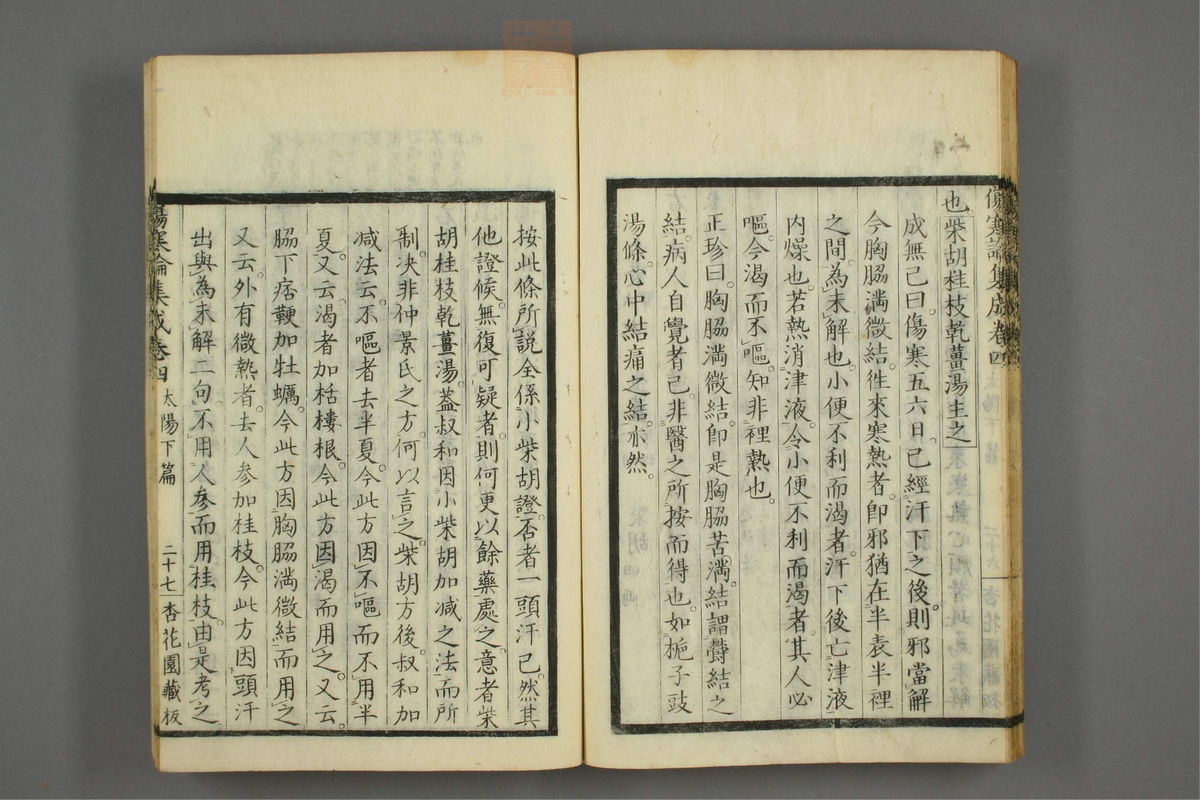 傷寒論集成卷四
也柴胡桂枝乾薑湯主之
成無己曰傷寒五六日已經汗下之後則邪當解
今胸脇滿微結往來寒熱者即邪猶在半表半裡
之間為未解也小便不利而渴者汗下後亡津液
内燥也若熱消津液令小便不利而渴者其人必
嘔今渴而不嘔知非裡熱也
正珍曰胸脇滿微結即是胸脇苦滿結謂鬱結之
結病人自覺者已非醫之所按而得也如梔子豉
湯條心中結痛之結亦然
按此條所說全係小柴胡證否者一頭汗已然其
他證候無復可疑者則何更以餘藥處之意者柴
胡桂枝乾薑湯蓋叔和因小柴胡加減之法而所
制决非仲景氏之方何以言之柴胡方後叔和加
减法云不嘔者去半夏今此方因不嘔而不用半
夏又云渴者加栝樓根今此方因渴而用之又云
脇下痞鞕加牡蠣今此方因胸脇滿微結而用之
又云外有微熱者去人參加桂枝今此方因頭汗
出與為未解二句不用人參而用桂枝由是考之
傷寒論集成卷四 太陽下篇 二十七 杏花園藏板